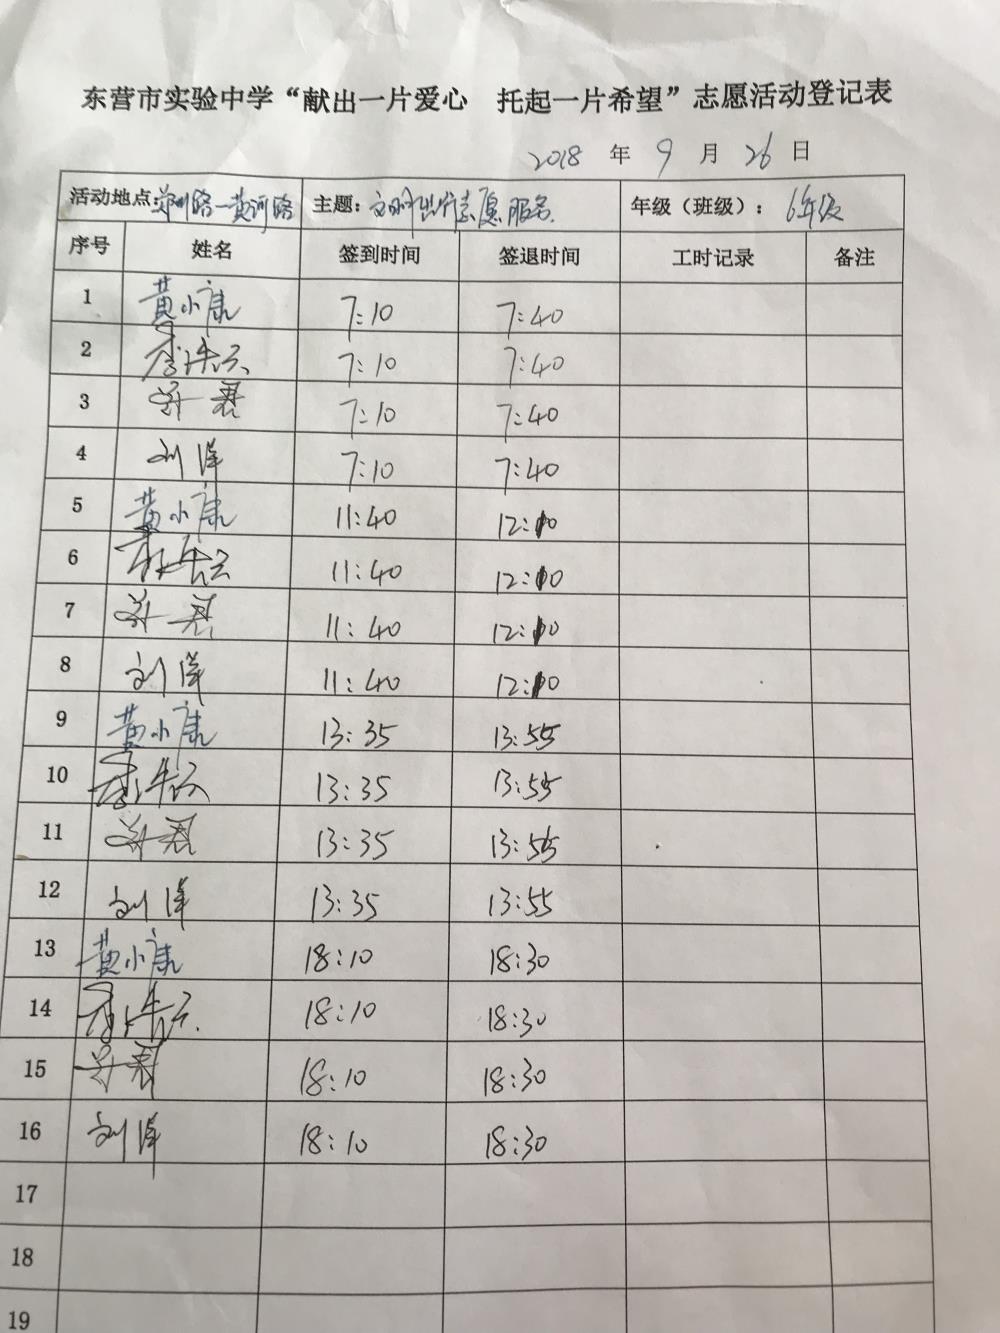 东营市实验中学“献出一片爱心 托起一片希望”志愿活动登记表
2018 年 9 月 26 日
活动地点:郑州路一黄河路 主题:文明出行志愿服务 年级（班级）: 6年级
序号 姓名 签到时间 签退时间 工时记录 备注
1 黄小康 7:10 7:40
2 7:10 7:40
3 7:10 7:40
4 刘洋 7:10 7:40
5 黄小康 11:40 12:10
6 11:40 12:10
7 11:40 12:10
8 刘洋 11:40 12:10
9 黄小康 13:35 13:55
10 13:35 13:55
11 13:35 13:55
12 刘洋 13:35 13:55
13 黄小康 18:10 18:30
14 18:10 18:30
15 18:10 18:30
16 刘洋 18:10 18:30
17
18
19